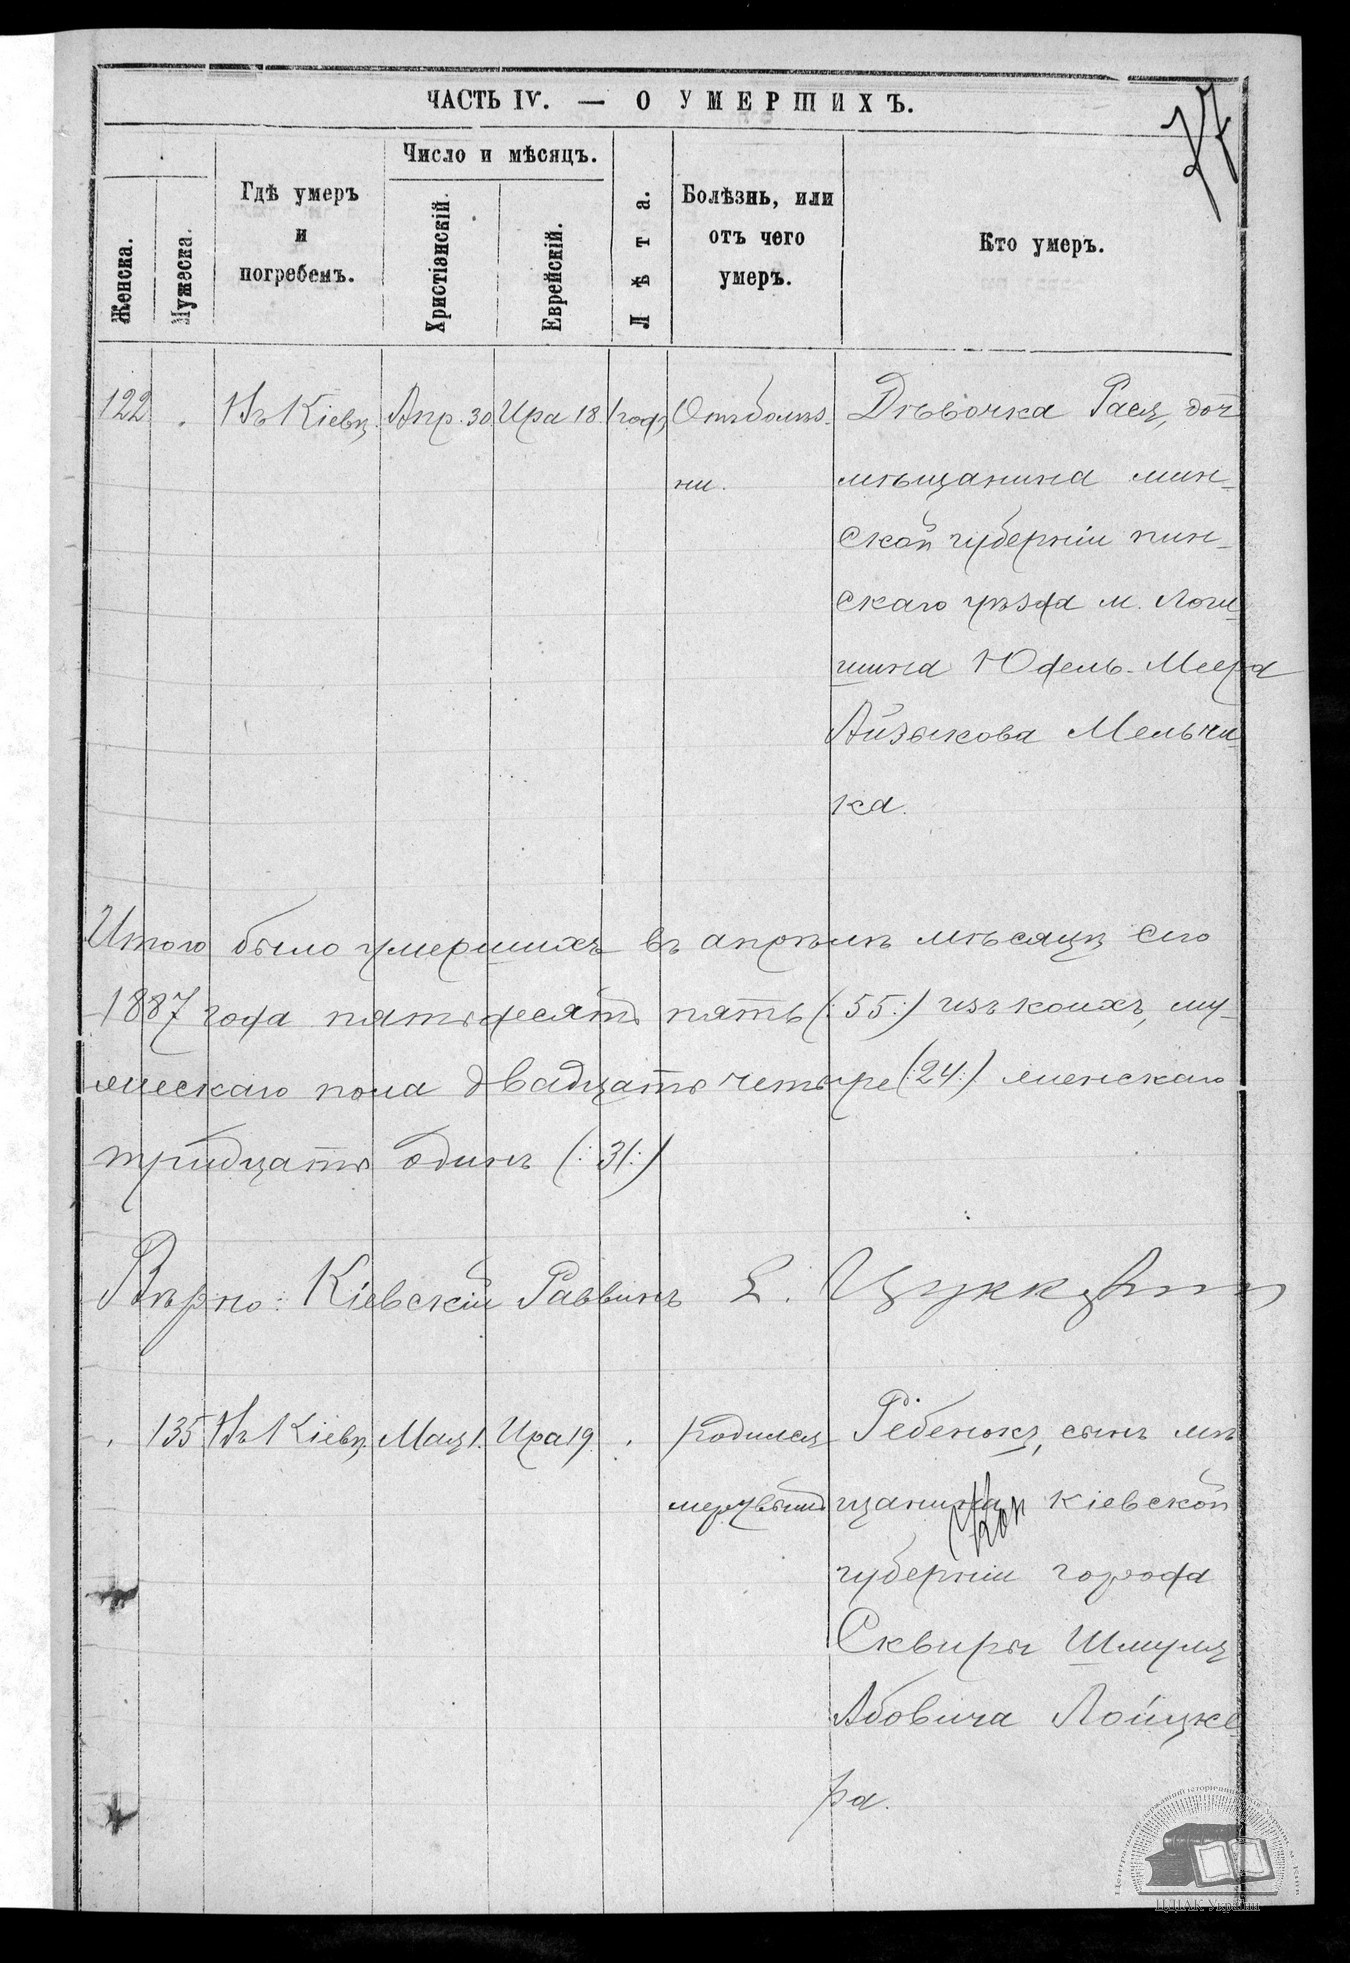 ЧАСТЬ IV. — О УМЕРШИХЪ.
Женска.
Мужеска.
Гдѣ умеръ
и
погребенъ.
Число и мѣсяцъ.
Христіанскій.
Еврейскій.
Лѣта.
Болѣзнь, или
отъ чего
умеръ.
Кто умеръ.
122 Въ Кіевѣ Апр. 30 Ира 18. 1 годъ Отъ болѣз- Дѣвочка Рася, доч
ни. мѣщанина мин-
ской губерніи пин-
скаго уѣзда м. Логи-
шина Юдель-Меера
Айзыкова Мельни-
ка.
Итого было умершихъ въ апрѣлѣ мѣсяцѣ сего
1887 года пятьдесятъ пять (:55:) изъ коихъ, му-
жескаго пола двадцать четыре (:24:) женскаго
тридцать одинъ (:31:)
Вѣрно: Кіевскій Раввинъ
135 Въ Кіевѣ Мая 1. Ира 19. родился Ребенокъ, сынъ мѣ
мертвымъ щанина кіевской
губерніи города
Сквиры Шмуля
Абовича Лойцке
ра.
ЦДІАК України